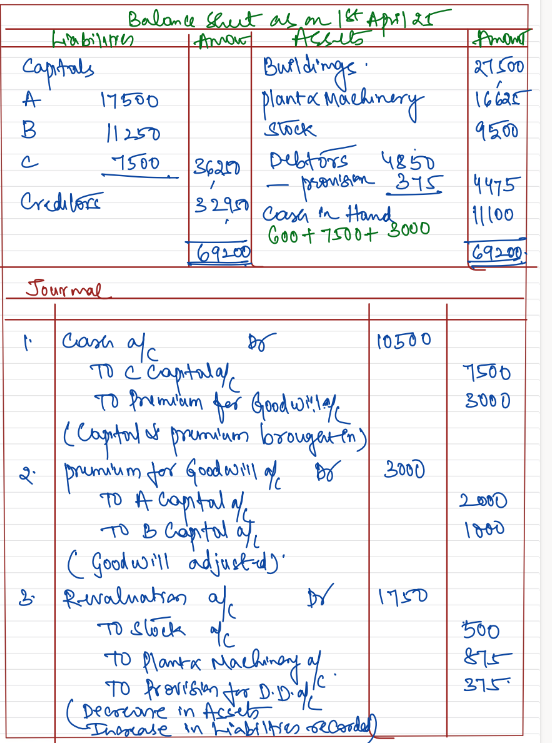 Balance Sheet as on 1st April 25
Liabilities Amount Assets Amount
Capitals Buildings. 27500
A 17500 Plant & Machinery 16625
B 11250 Stock 9500
C 7500 36250 Debtors 4850
- provision 375 4475
Creditors 32950 Cash in Hand 11100
600 + 7500 + 3000
69200 69200
Journal
1. Cash a/c Dr 10500
To C Capital a/c 7500
To Premium for Goodwill a/c 3000
(Capital & premium brought in)
2. premium for Goodwill a/c Dr 3000
To A Capital a/c 2000
To B Capital a/c 1000
(Goodwill adjusted).
3. Revaluation a/c Dr 1750
To Stock a/c 500
To Plant & Machinery a/c 875
To Provision for D.D. a/c 375
(Decrease in Assets
Increase in Liabilities recorded)